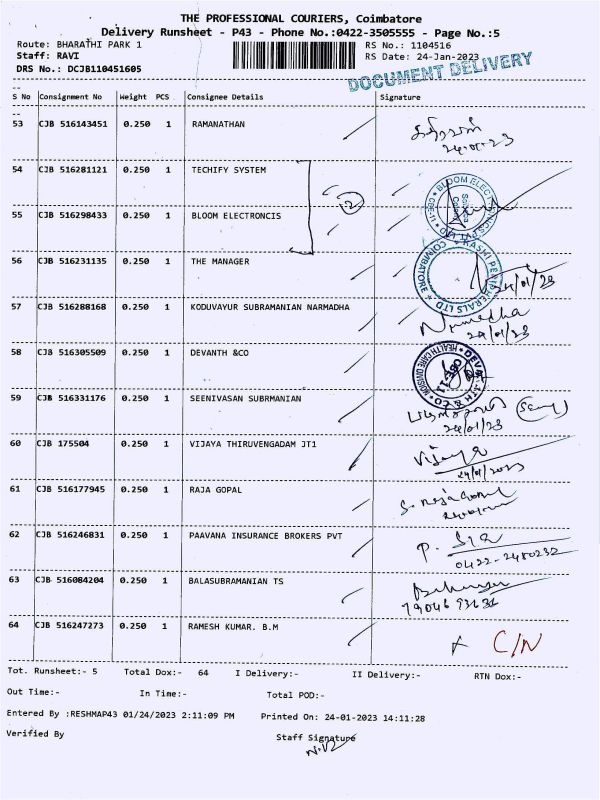 THE PROFESSIONAL COURIERS, Coimbatore
Delivery Runsheet - P43 - Phone No.:0422-3505555 - Page No.:5
Route: BHARATHI PARK 1 RS No.: 1104516
Staff: RAVI RS Date: 24-Jan-2023
DRS No.: DCJB110451605
DOCUMENT DELIVERY
S No Consignment No Weight PCS Consignee Details Signature
53 CJB 516143451 0.250 1 RAMANATHAN
24-01-23
54 CJB 516281121 0.250 1 TECHIFY SYSTEM
2
55 CJB 516298433 0.250 1 BLOOM ELECTRONCIS
56 CJB 516231135 0.250 1 THE MANAGER
24/01/23
57 CJB 516288168 0.250 1 KODUVAYUR SUBRAMANIAN NARMADHA
Narmadha
24/01/23
58 CJB 516305509 0.250 1 DEVANTH &CO
59 CJB 516331176 0.250 1 SEENIVASAN SUBRMANIAN
24/01/23
60 CJB 175504 0.250 1 VIJAYA THIRUVENGADAM JT1
Vijaya
24/01/2023
61 CJB 516177945 0.250 1 RAJA GOPAL
S. Rajagopal
62 CJB 516246831 0.250 1 PAAVANA INSURANCE BROKERS PVT
0422-2480232
63 CJB 516084204 0.250 1 BALASUBRAMANIAN TS
64 CJB 516247273 0.250 1 RAMESH KUMAR. B.M
C/N
Tot. Runsheet:- 5 Total Dox:- 64 I Delivery:- II Delivery:- RTN Dox:-
Out Time:- In Time:- Total POD:-
Entered By :RESHMAP43 01/24/2023 2:11:09 PM Printed On: 24-01-2023 14:11:28
Verified By Staff Signature